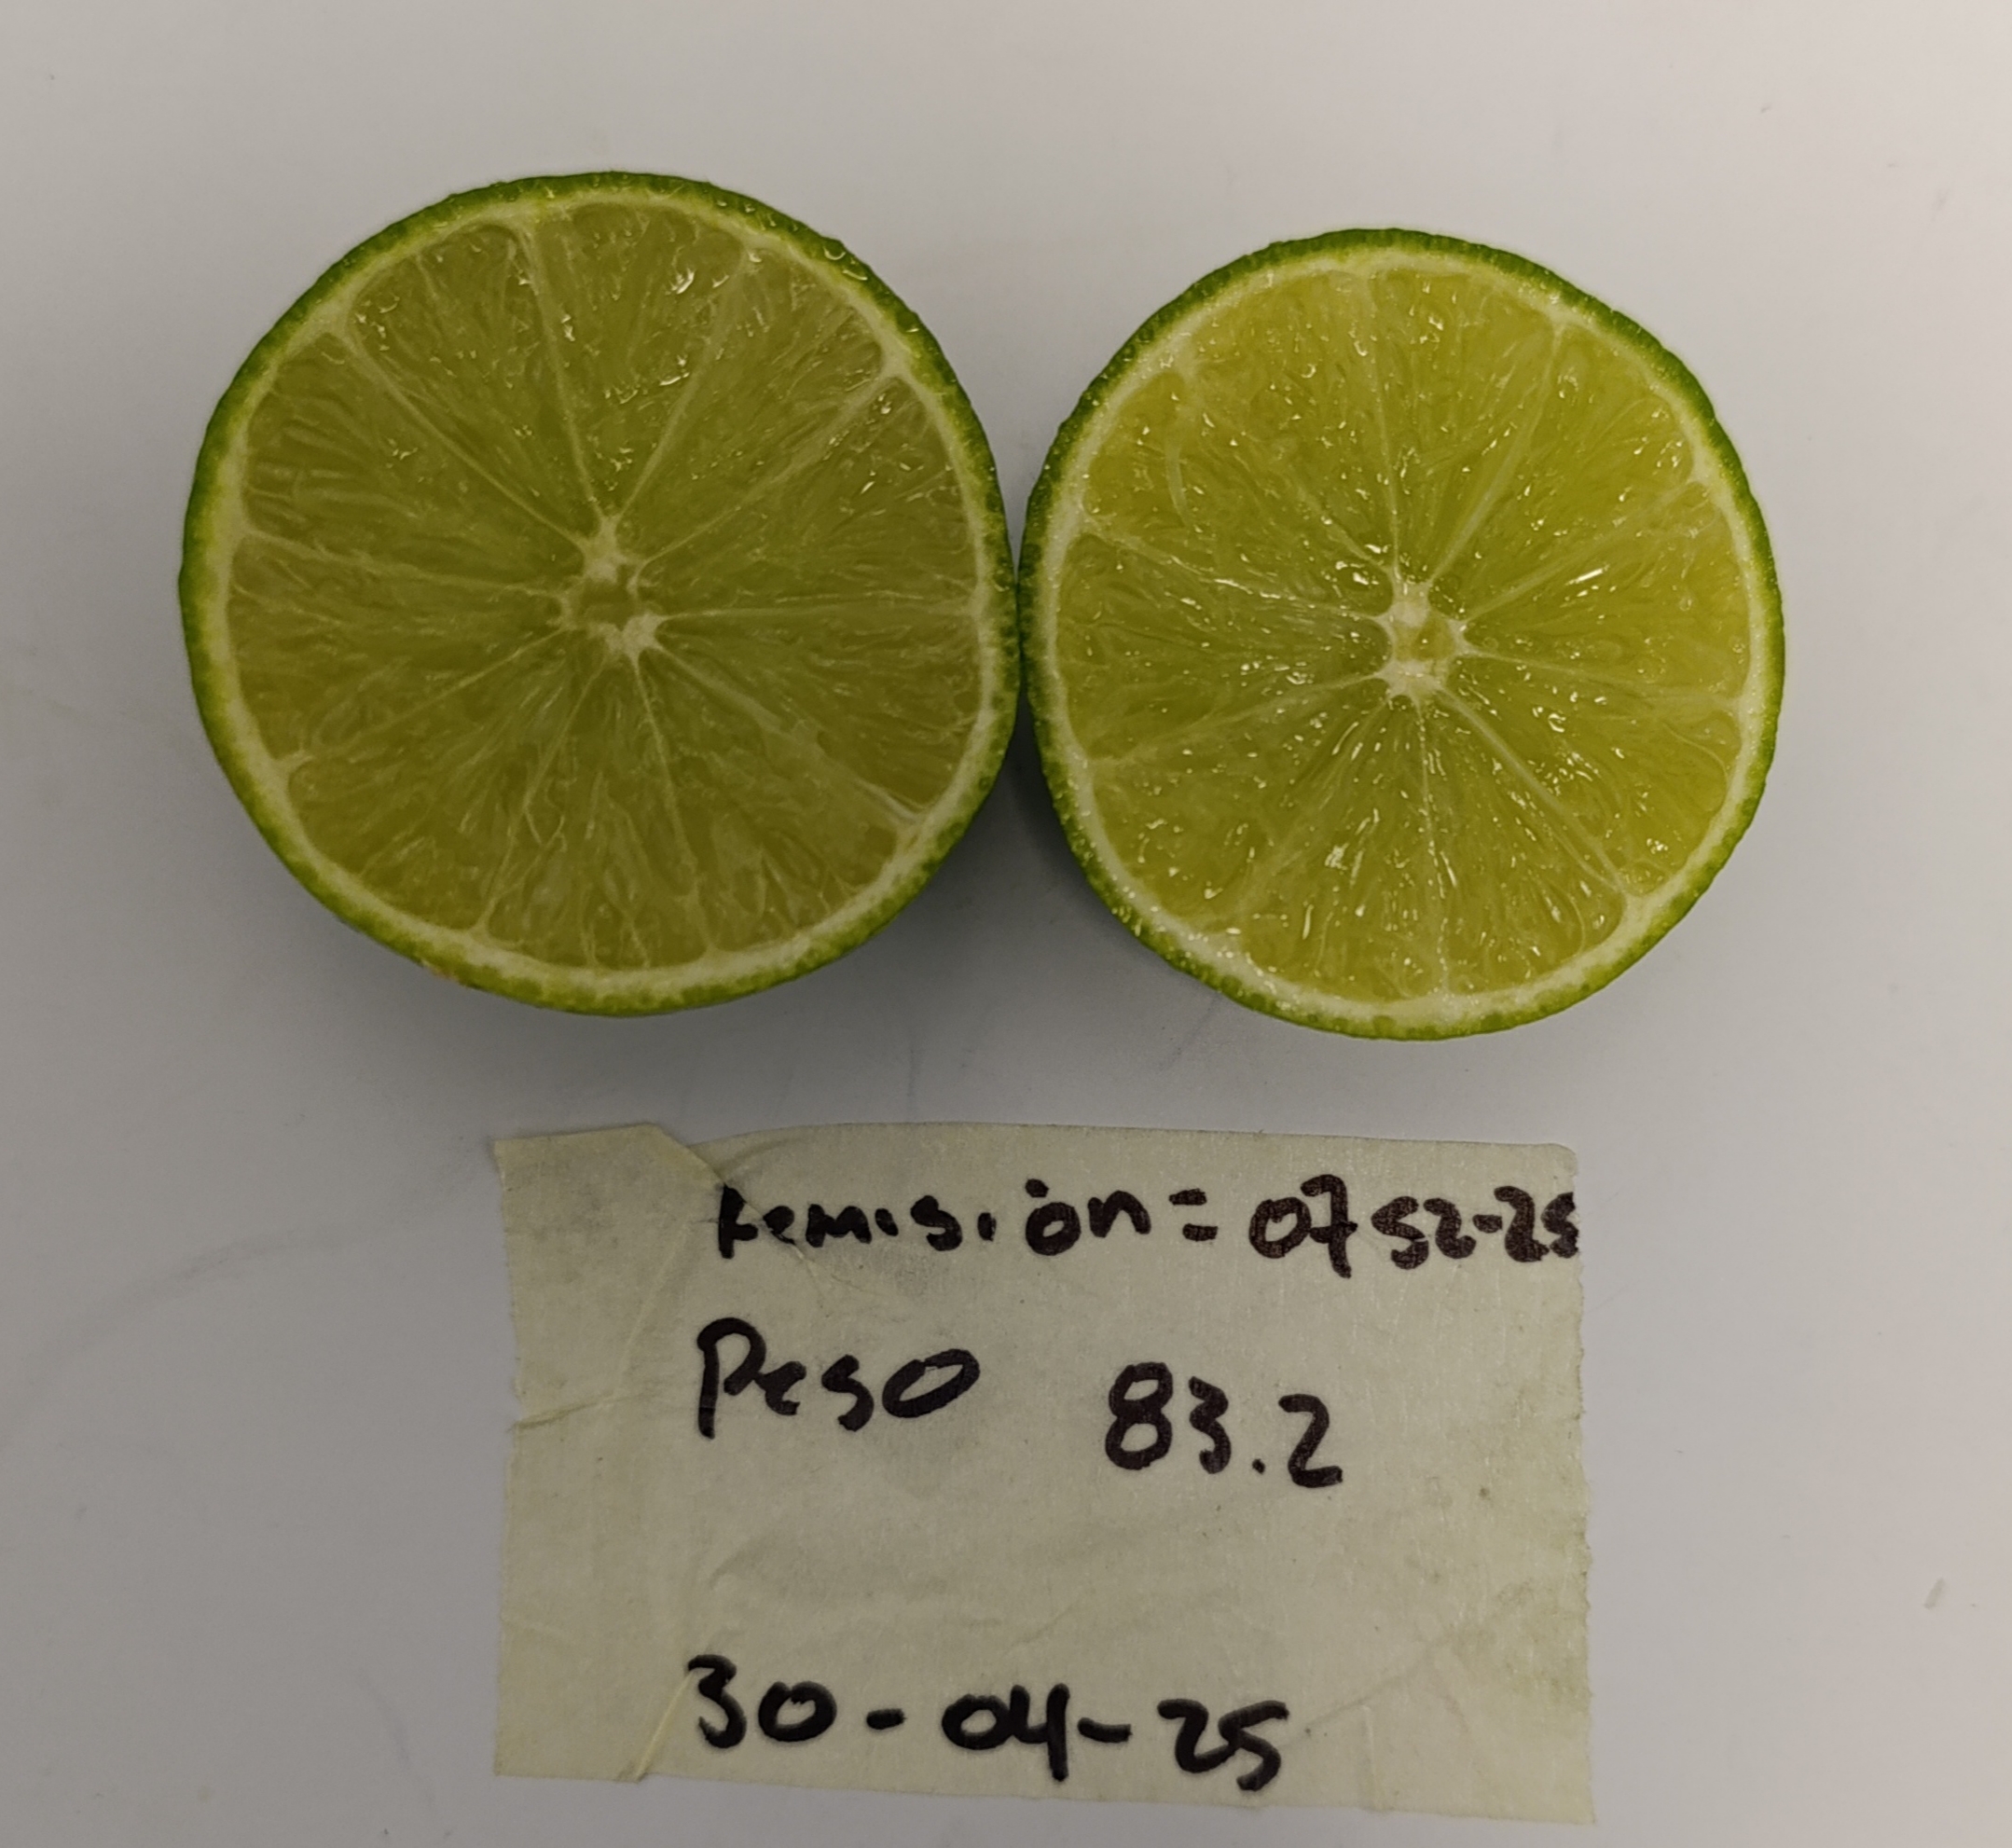 Remisión = 0752-25
Peso 83.2
30-04-25